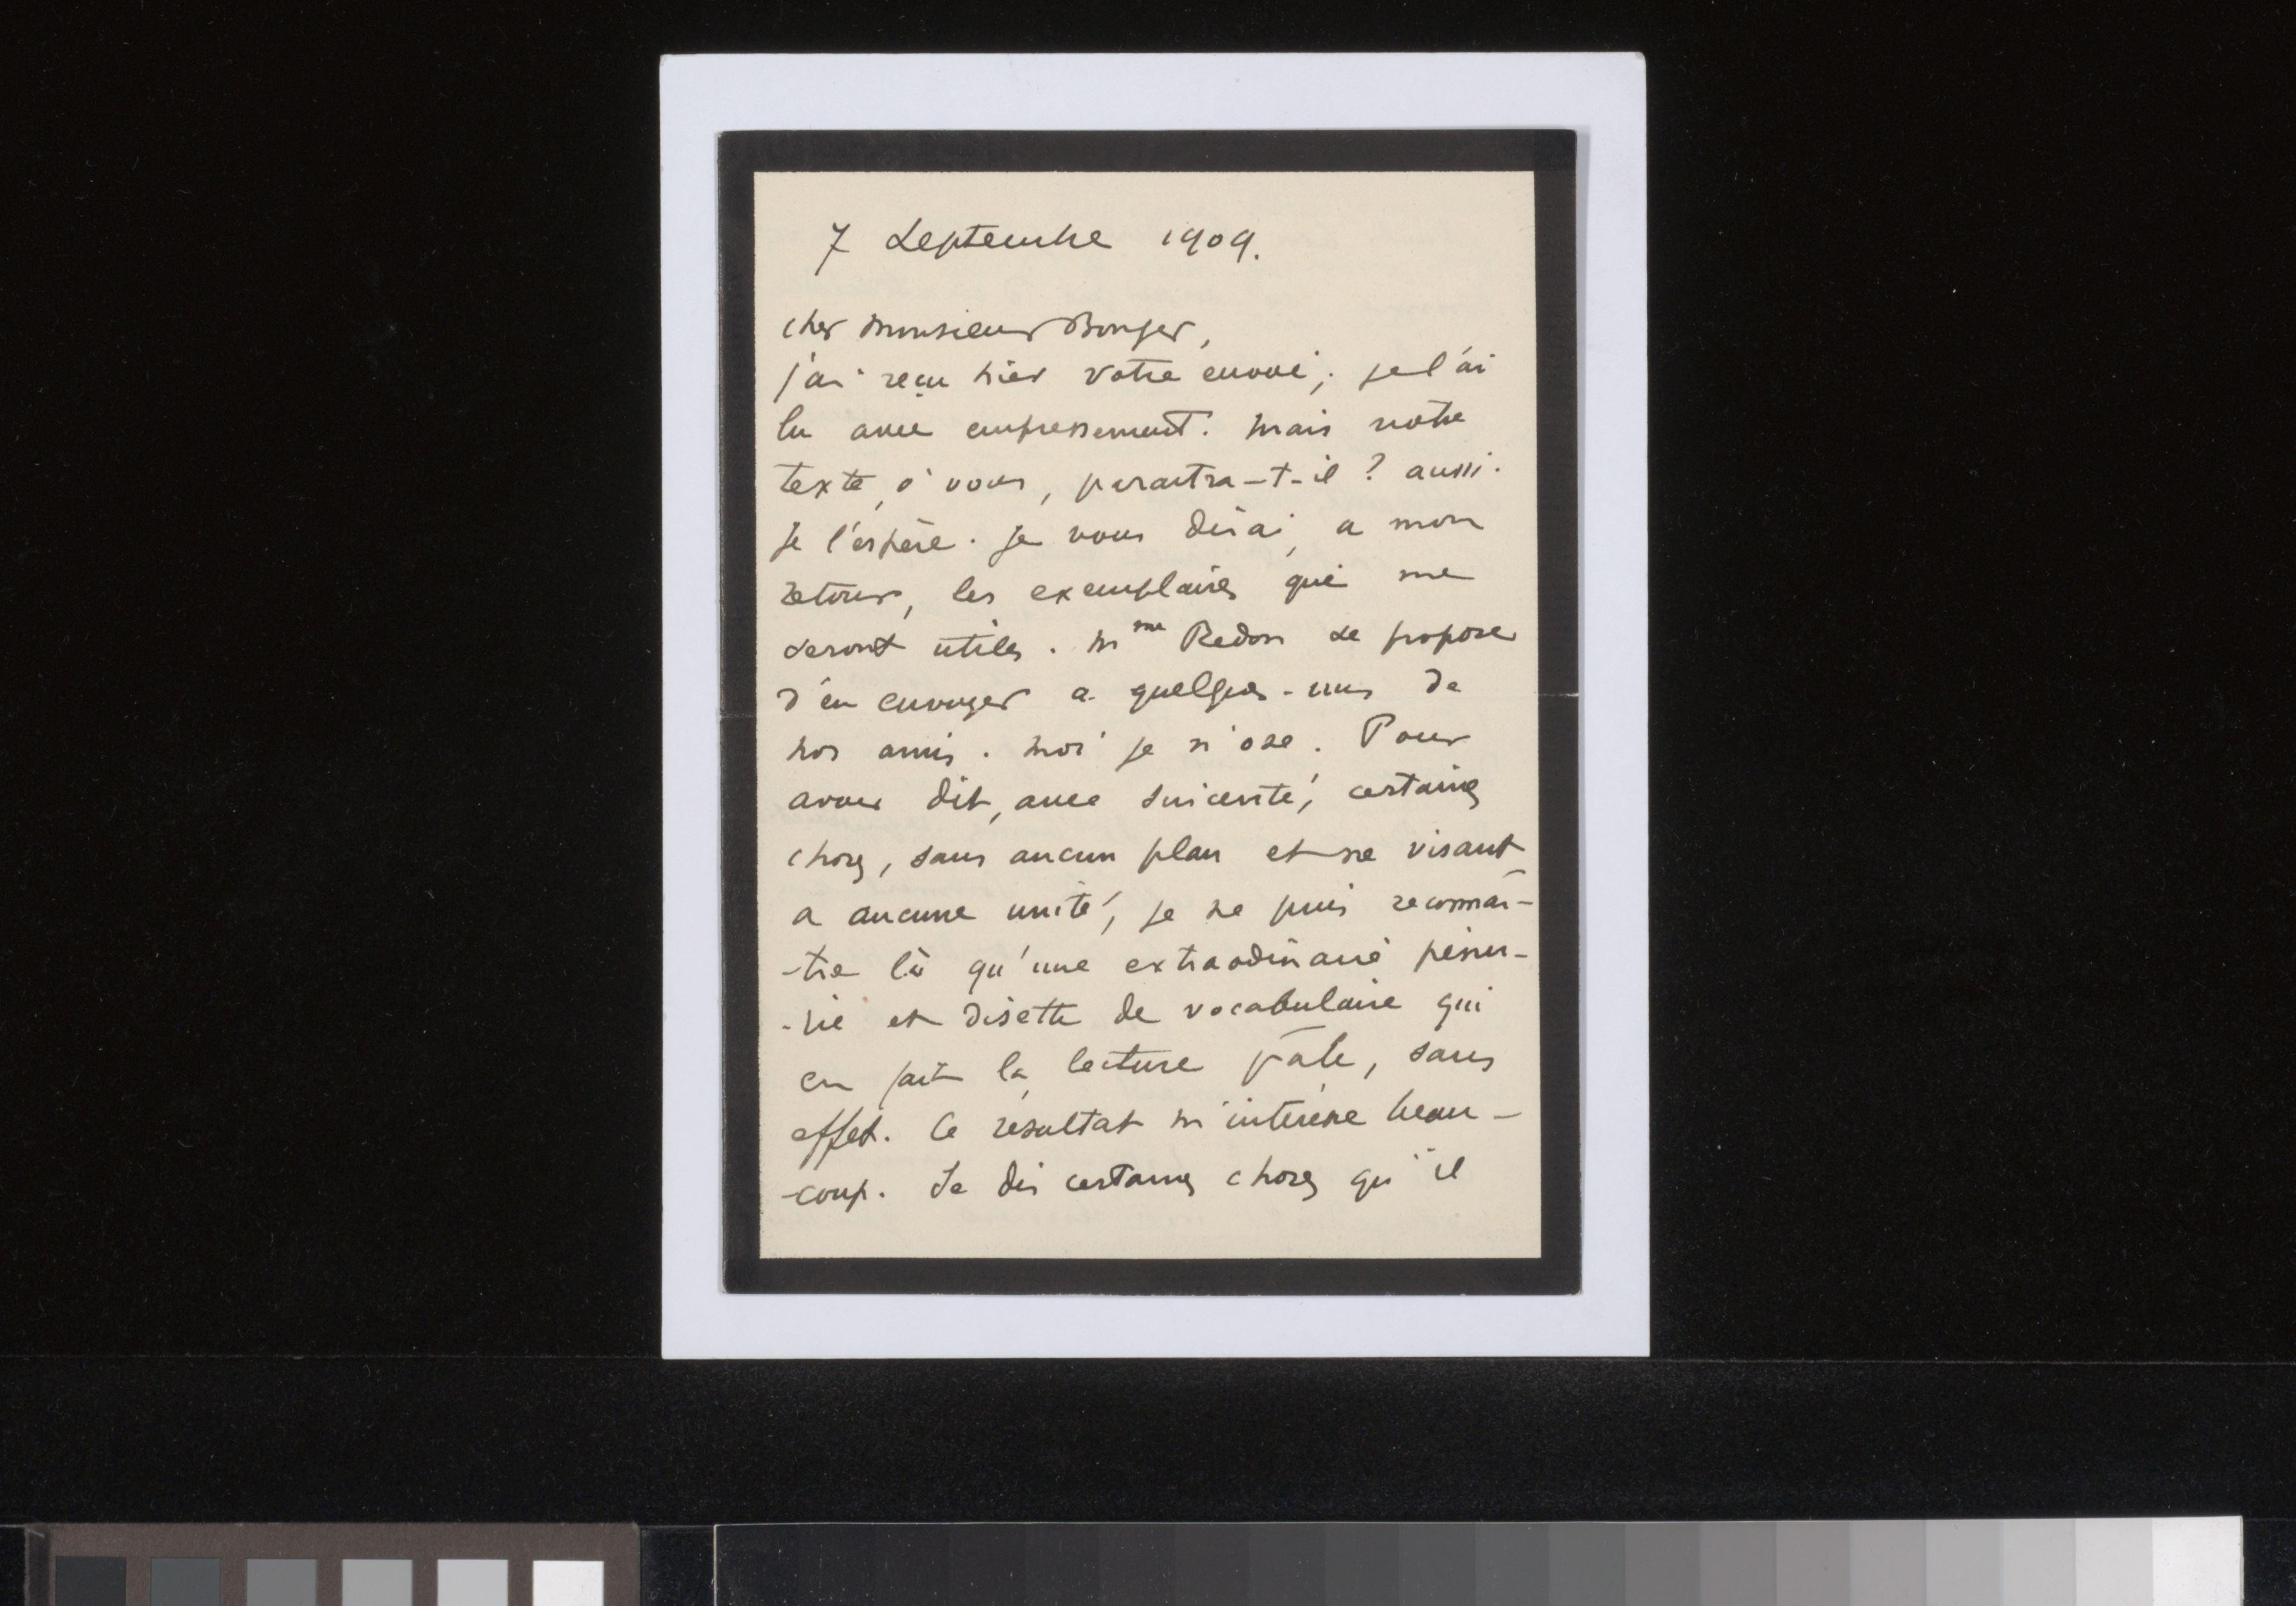 7 Septembre 1909.
cher Monsieur Bonger,
j'ai reçu hier votre envoi; je l'ai
lu avec empressement. Mais votre
texte, à vous, paraitra-t-il ? aussi.
Je l'espère. Je vous dirai, a mon
retour, les exemplaires qui me
seront utiles. Mme Redon se propose
d'en envoyer a quelques-uns de
nos amis. Moi je n'ose. Pour
avoir dit, avec sincerité, certaines
choses, sans aucun plan et ne visant
a aucune unité, je ne puis reconnaî-
-tre là qu'une extraodinaire pénu-
-rie et disette de vocabulaire qui
en fait la lecture pâle, sans
effet. Ce résultat m'intéresse beau-
-coup. Je dis certaines choses qu'il